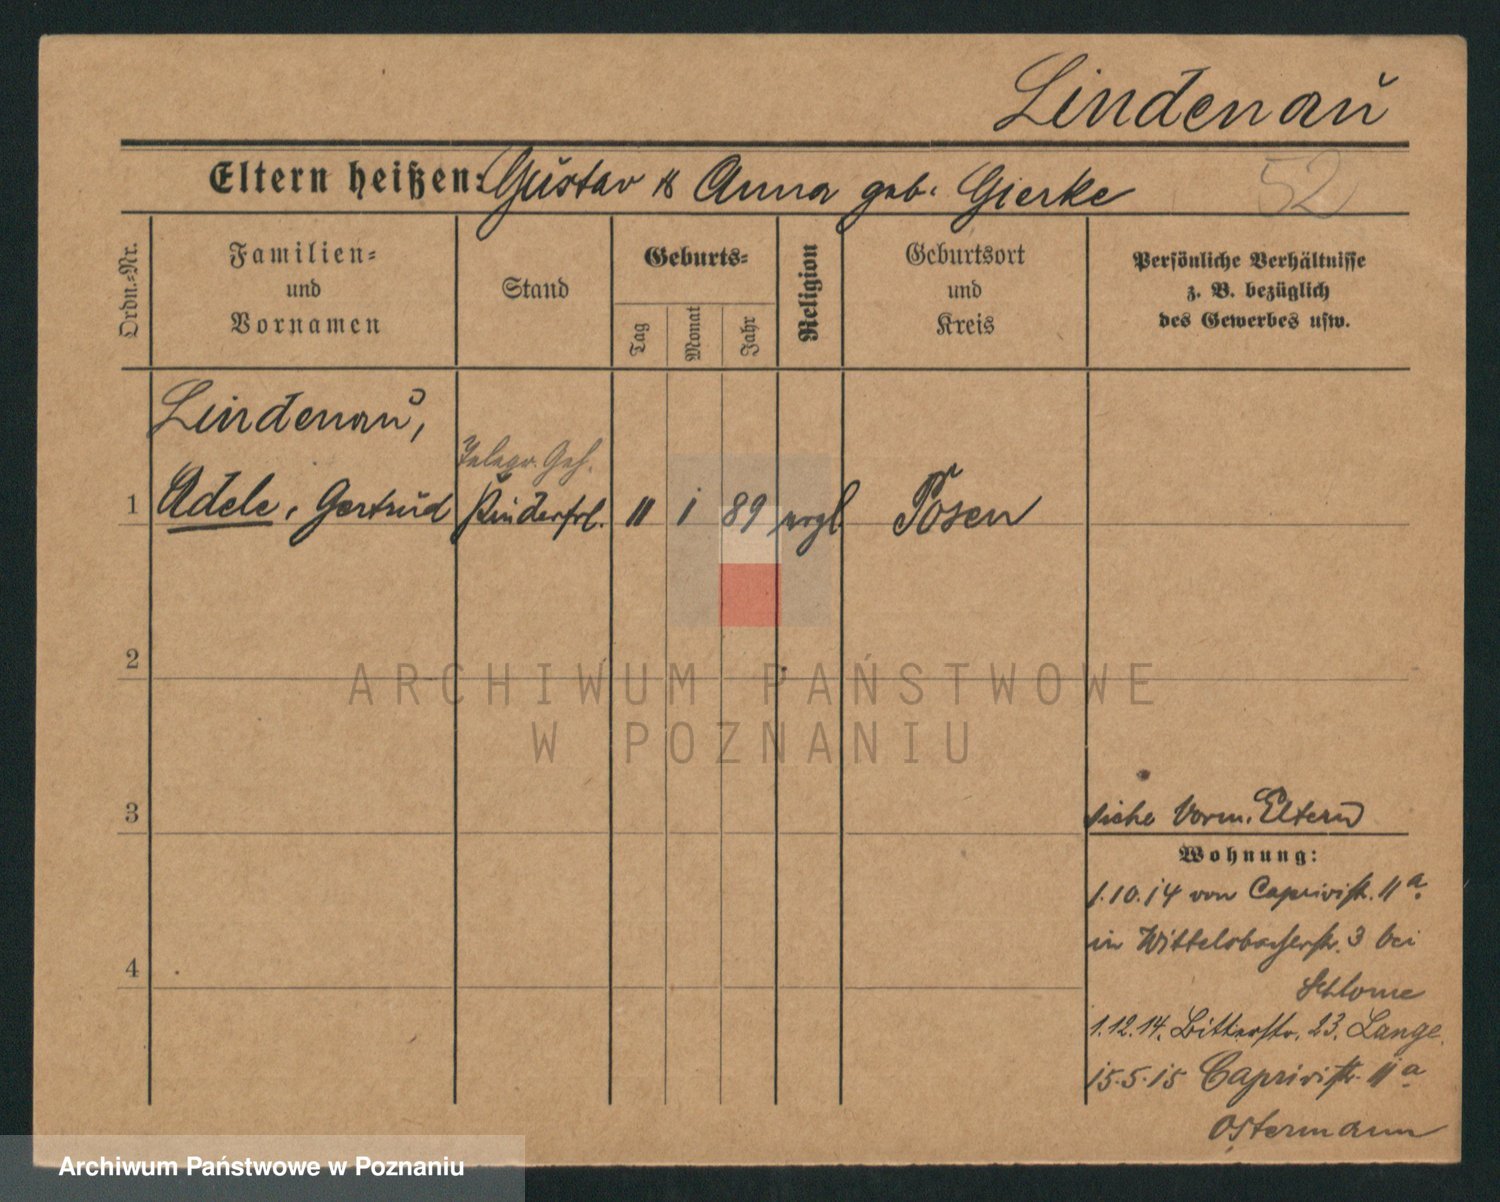 Lindenau
Eltern heißen: Gustav & Anna geb. Gierke
52
Ordn.-Nr.
Familien-
und
Vornamen
Stand
Geburts-
Tag
Monat
Jahr
Religion
Geburtsort
und
Kreis
Persönliche Verhältnisse
z. B. bezüglich
des Gewerbes usw.
Lindenau,
Telegr. Geh.
1 Adele, Gertrud Kinderfrl. 11 1 89 evgl Posen
2
ARCHIWUM PAŃSTWOWE
W POZNANIU
3
siehe Vorm. Eltern
Wohnung:
1.10.14 von Caprivistr. 11a
in Wittelsbacherstr. 3 bei
4
Schlome
1.12.14. Bitterstr. 23. Lange
15.5.15 Caprivistr. 11a
Ostermann
Archiwum Państwowe w Poznaniu